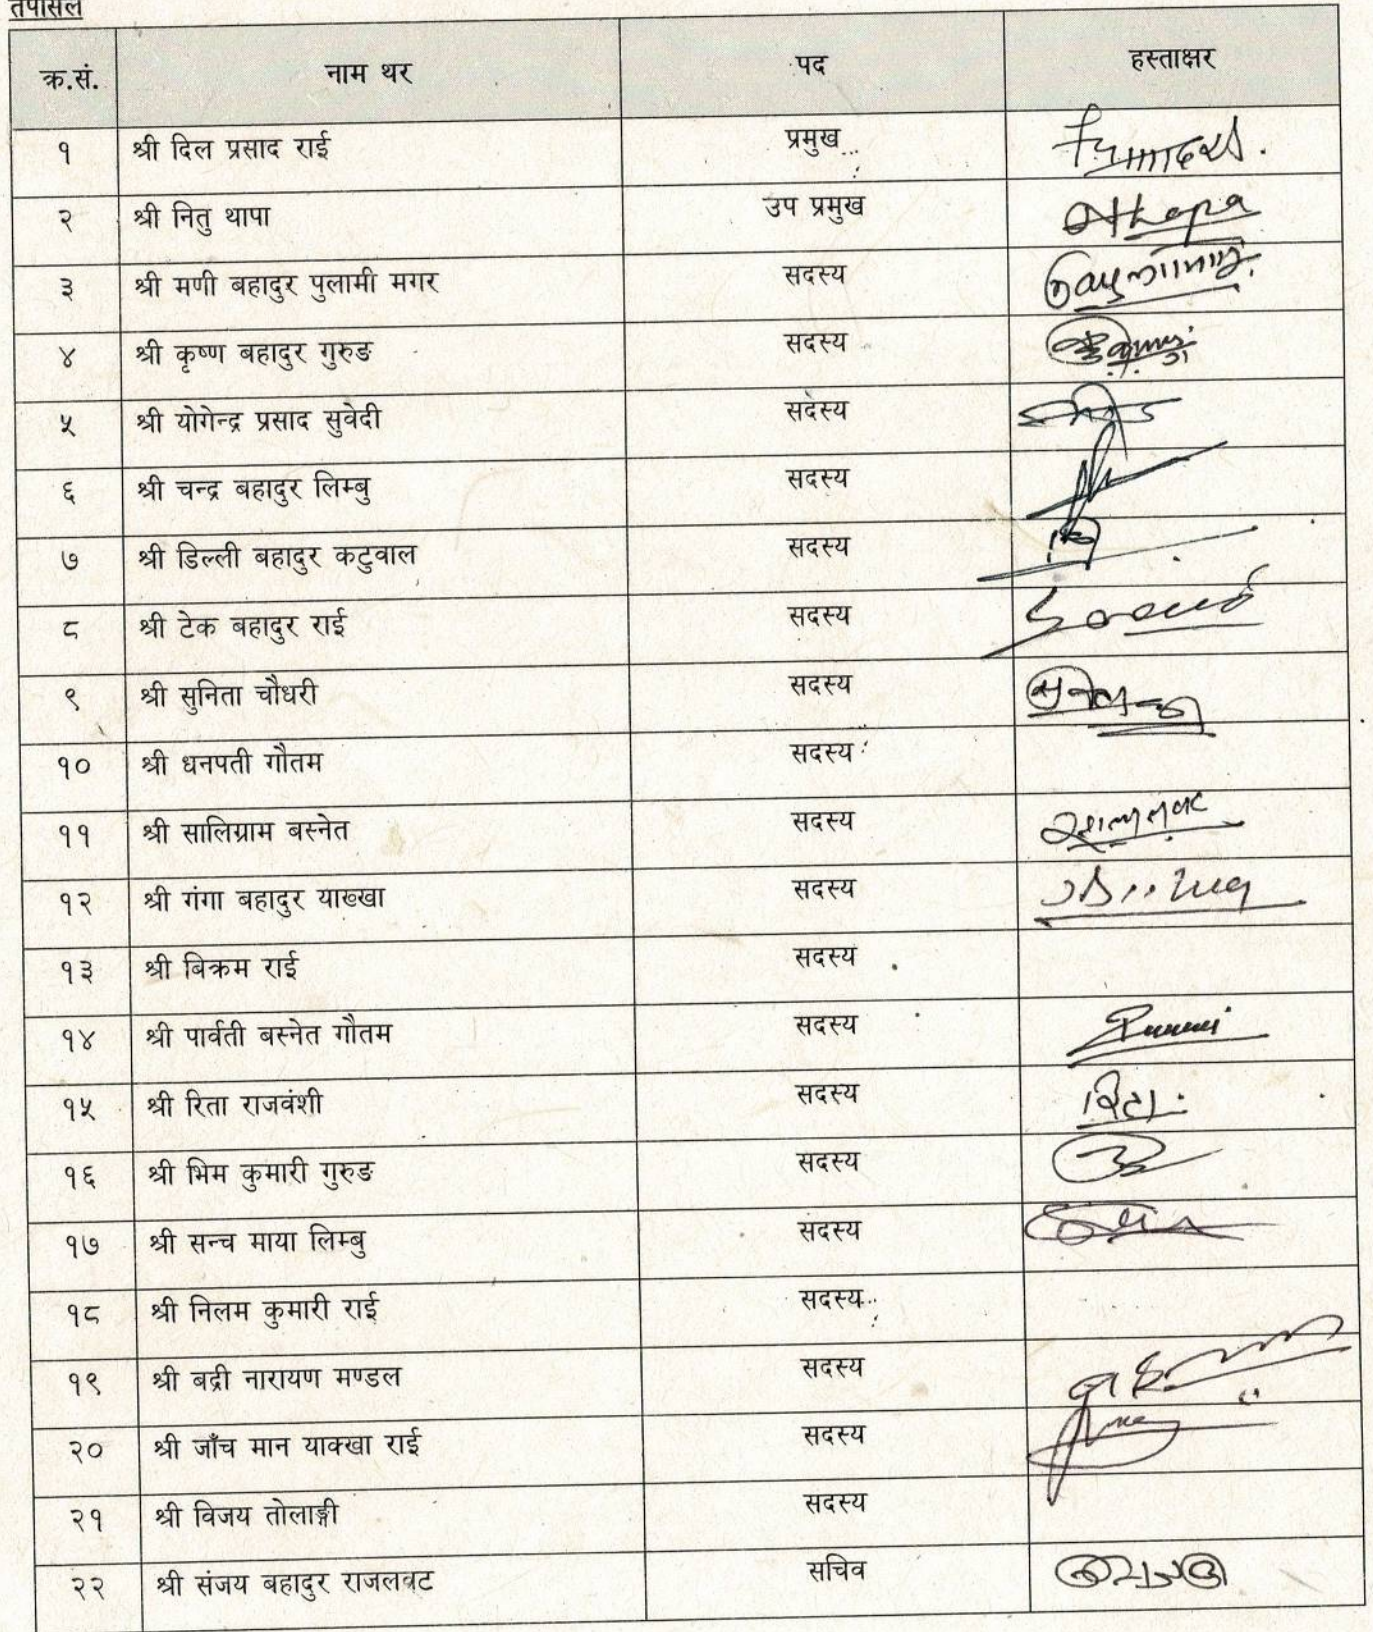 तपसिल
क्र.सं. नाम थर पद हस्ताक्षर
१ श्री दिल प्रसाद राई प्रमुख
२ श्री नितु थापा उप प्रमुख Nthapa
३ श्री मणी बहादुर पुलामी मगर सदस्य
४ श्री कृष्ण बहादुर गुरुङ सदस्य
५ श्री योगेन्द्र प्रसाद सुवेदी सदस्य
६ श्री चन्द्र बहादुर लिम्बु सदस्य
७ श्री डिल्ली बहादुर कटुवाल सदस्य
८ श्री टेक बहादुर राई सदस्य
९ श्री सुनिता चौधरी सदस्य
१० श्री धनपती गौतम सदस्य
११ श्री सालिग्राम बस्नेत सदस्य
१२ श्री गंगा बहादुर याख्खा सदस्य
१३ श्री बिक्रम राई सदस्य
१४ श्री पार्वती बस्नेत गौतम सदस्य
१५ श्री रिता राजवंशी सदस्य रिता
१६ श्री भिम कुमारी गुरुङ सदस्य
१७ श्री सन्च माया लिम्बु सदस्य
१८ श्री निलम कुमारी राई सदस्य
१९ श्री बद्री नारायण मण्डल सदस्य
२० श्री जाँच मान याक्खा राई सदस्य
२१ श्री विजय तोलाङ्गी सदस्य
२२ श्री संजय बहादुर राजलवट सचिव